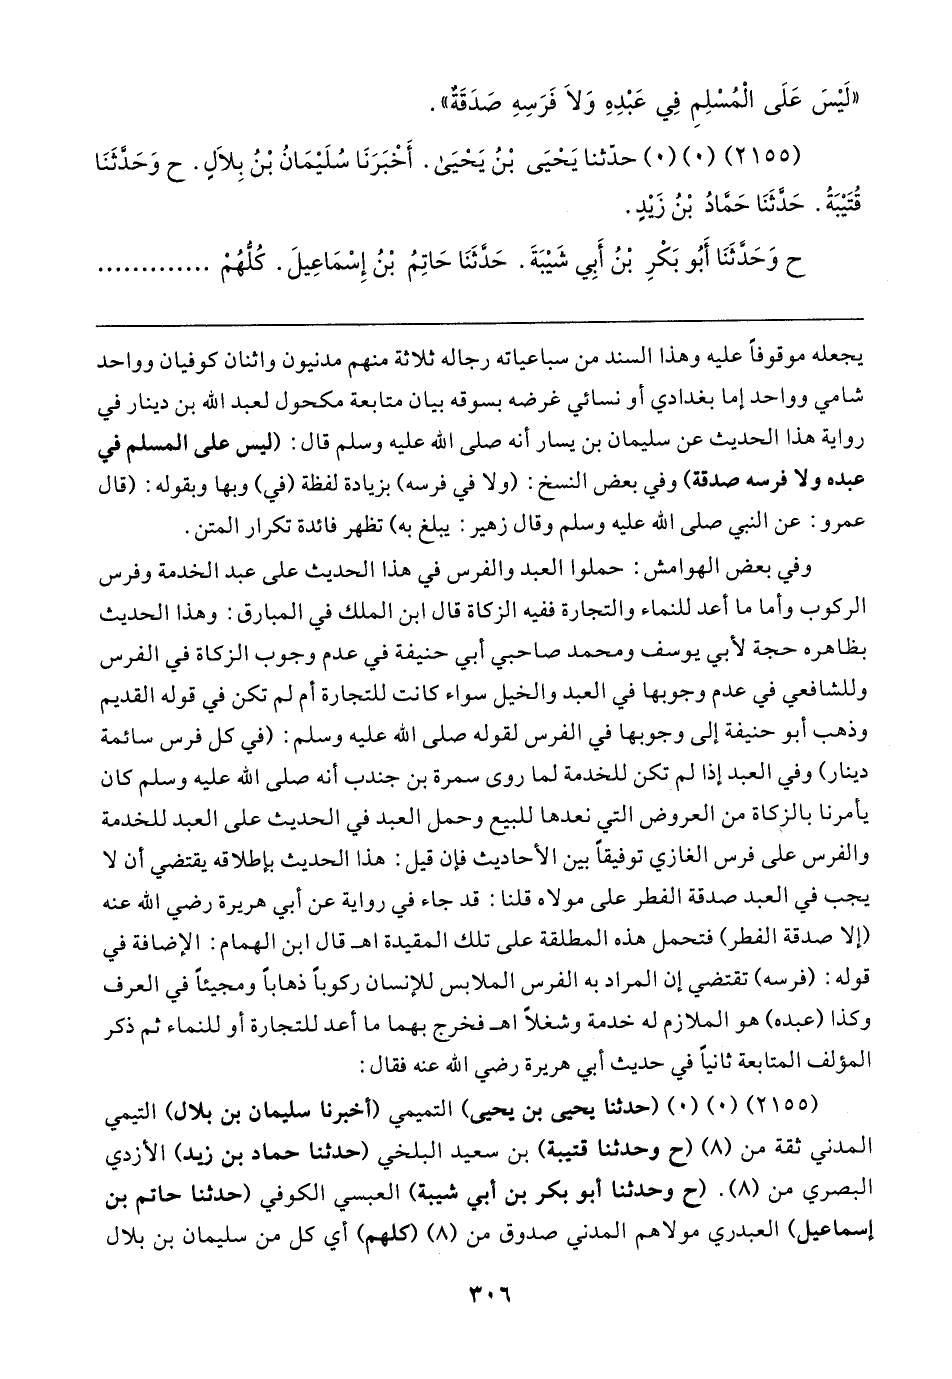 «لَيْسَ عَلَى الْمُسْلِمِ فِي عَبْدِهِ وَلاَ فَرَسِهِ صَدَقَةٌ».
(٢١٥٥) (٠) (٠) حدّثنا يَحْيَى بْنُ يَحْيَىٰ. أَخْبَرَنَا سُلَيْمَانُ بْنُ بِلاَلٍ. ح وَحَدَّثَنَا
قُتَيْبَةُ. حَدَّثَنَا حَمَّادُ بْنُ زَيْدٍ.
ح وَحَدَّثَنَا أَبُو بَكْرِ بْنُ أَبِي شَيْبَةَ. حَدَّثَنَا حَاتِمُ بْنُ إِسْمَاعِيلَ. كُلُّهُمْ .............
يجعله موقوفاً عليه وهذا السند من سباعياته رجاله ثلاثة منهم مدنيون واثنان كوفيان وواحد
شامي وواحد إما بغدادي أو نسائي غرضه بسوقه بيان متابعة مكحول لعبد الله بن دينار في
رواية هذا الحديث عن سليمان بن يسار أنه صلى الله عليه وسلم قال: (ليس على المسلم في
عبده ولا فرسه صدقة) وفي بعض النسخ: (ولا في فرسه) بزيادة لفظة (في) وبها وبقوله: (قال
عمرو: عن النبي صلى الله عليه وسلم وقال زهير: يبلغ به) تظهر فائدة تكرار المتن.
وفي بعض الهوامش: حملوا العبد والفرس في هذا الحديث على عبد الخدمة وفرس
الركوب وأما ما أعد للنماء والتجارة ففيه الزكاة قال ابن الملك في المبارق: وهذا الحديث
بظاهره حجة لأبي يوسف ومحمد صاحبي أبي حنيفة في عدم وجوب الزكاة في الفرس
وللشافعي في عدم وجوبها في العبد والخيل سواء كانت للتجارة أم لم تكن في قوله القديم
وذهب أبو حنيفة إلى وجوبها في الفرس لقوله صلى الله عليه وسلم: (في كل فرس سائمة
دينار) وفي العبد إذا لم تكن للخدمة لما روى سمرة بن جندب أنه صلى الله عليه وسلم كان
يأمرنا بالزكاة من العروض التي نعدها للبيع وحمل العبد في الحديث على العبد للخدمة
والفرس على فرس الغازي توفيقاً بين الأحاديث فإن قيل: هذا الحديث بإطلاقه يقتضي أن لا
يجب في العبد صدقة الفطر على مولاه قلنا: قد جاء في رواية عن أبي هريرة رضي الله عنه
(إلا صدقة الفطر) فتحمل هذه المطلقة على تلك المقيدة اهـ قال ابن الهمام: الإضافة في
قوله: (فرسه) تقتضي إن المراد به الفرس الملابس للإنسان ركوباً ذهاباً ومجيئاً في العرف
وكذا (عبده) هو الملازم له خدمة وشغلاً اهـ فخرج بهما ما أعد للتجارة أو للنماء ثم ذكر
المؤلف المتابعة ثانياً في حديث أبي هريرة رضي الله عنه فقال:
(٢١٥٥) (٠) (٠) (حدثنا يحيى بن يحيى) التميمي (أخبرنا سليمان بن بلال) التيمي
المدني ثقة من (٨) (ح وحدثنا قتيبة) بن سعيد البلخي (حدثنا حماد بن زيد) الأزدي
البصري من (٨). (ح وحدثنا أبو بكر بن أبي شيبة) العبسي الكوفي (حدثنا حاتم بن
إسماعيل) العبدري مولاهم المدني صدوق من (٨) (كلهم) أي كل من سليمان بن بلال
٣٠٦